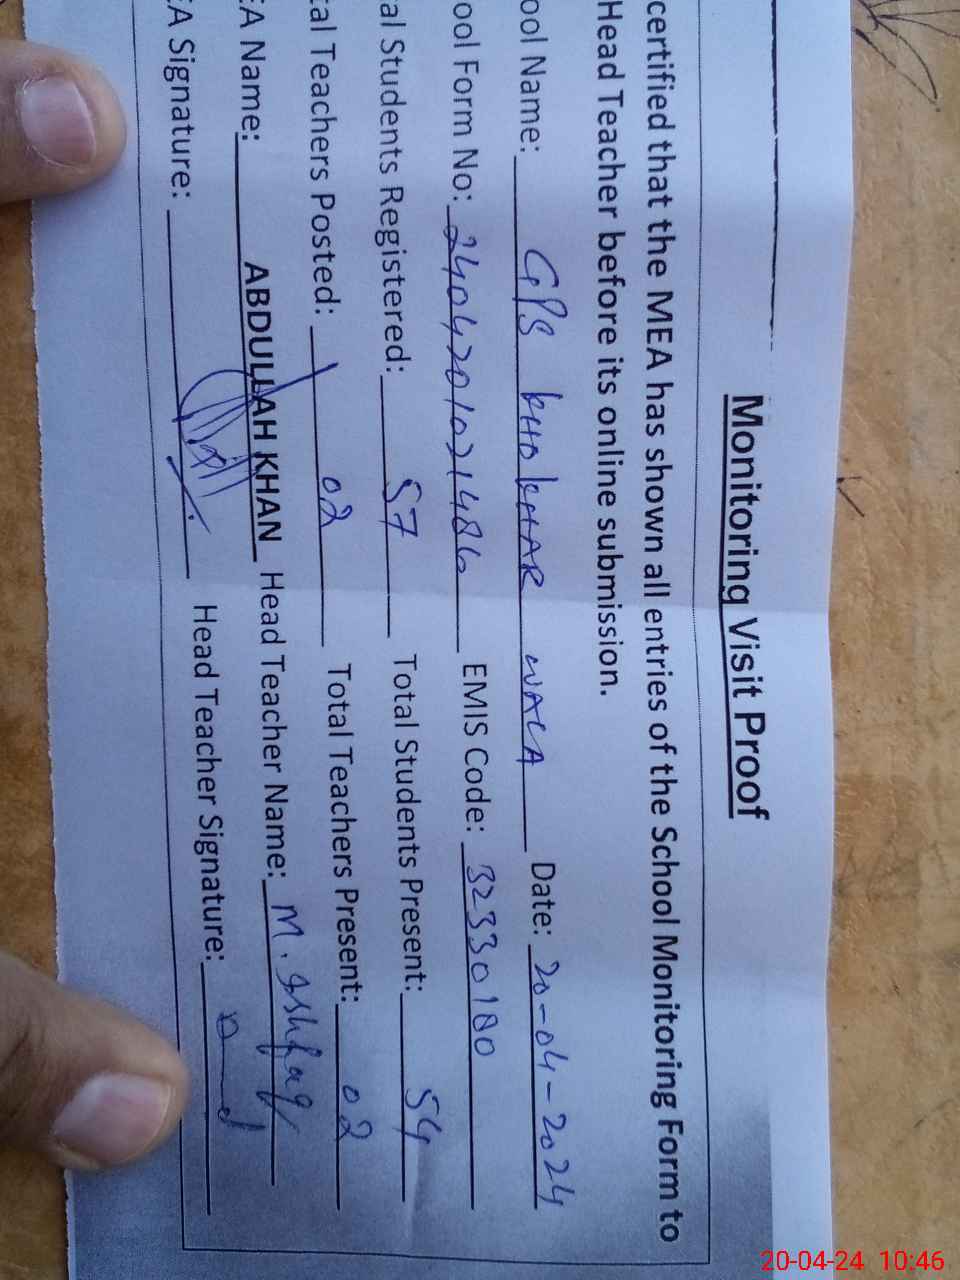 Monitoring Visit Proof
certified that the MEA has shown all entries of the School Monitoring Form to
Head Teacher before its online submission.
ool Name: GPS KHOKHAR WALA Date: 20-04-2024
ool Form No: 2404201021486 EMIS Code: 32330180
al Students Registered: 57 Total Students Present: 54
tal Teachers Posted: 02 Total Teachers Present: 02
EA Name: ABDULLAH KHAN Head Teacher Name: M. Ishfaq
EA Signature: Head Teacher Signature:
20-04-24 10:46